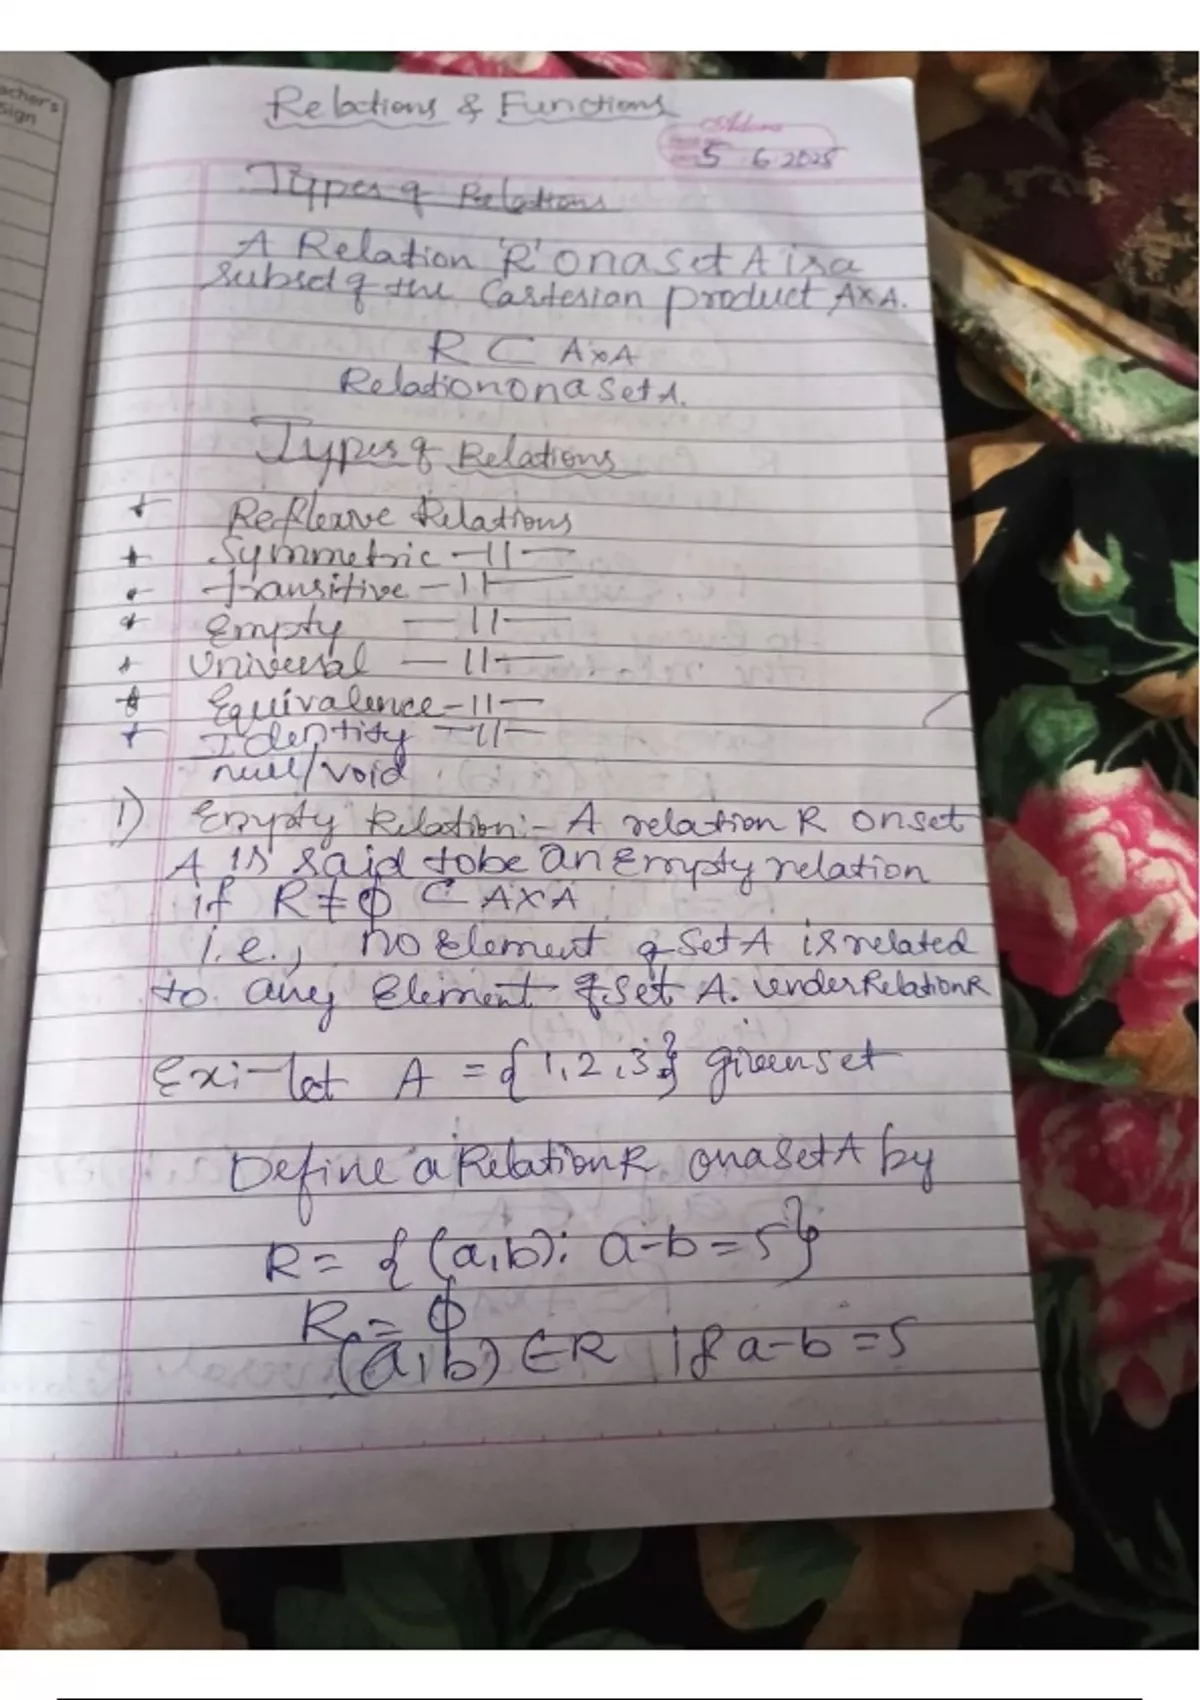 acher's
Sign
Relations & Functions
5 6 2025
Types of Relations
A Relation 'R' on a set A is a
subset of the Cartesian product A×A.
R ⊂ A×A
Relation on a Set A.
Types of Relations
Reflexive Relations
Symmetric —11—
transitive —11—
Empty —11—
Universal —11—
Equivalence —11—
Identity —11—
null/void
1) Empty Relation:- A relation R on set
A is said to be an Empty relation
if R ≠ ϕ ⊂ A×A
i.e., no Element of Set A is related
to any Element of Set A. under Relation R
Ex:- let A = {1, 2, 3} given set
Define a Relation R on a set A by
R = {(a,b): a-b=5}
R = ϕ
(a,b) ∈ R if a-b=5